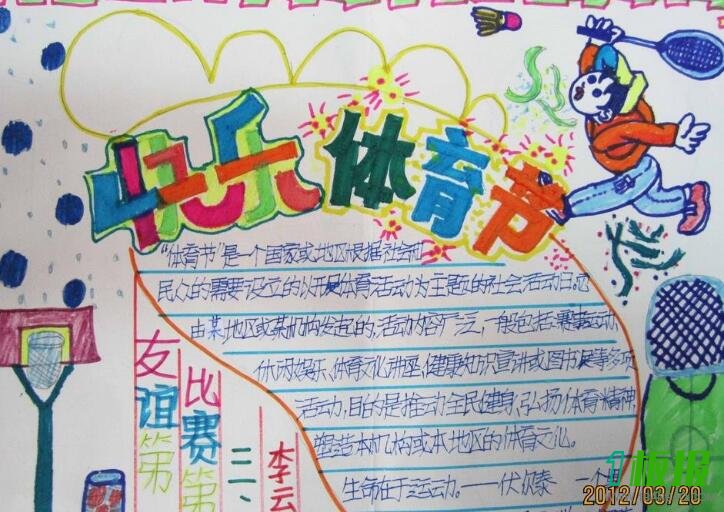 快乐体育节
“体育节”是一个国家或地区根据社会和
民众的需要设立的以开展体育活动为主题的社会活动日
由某地区或某机构发起的,活动内容广泛,一般包括:赛事运动,
休闲娱乐、体育文化讲座,健康知识宣讲或图书展等多项
活动,目的是推动全民健身,弘扬体育精神,
塑造本机构或本地区的体育文化。
生命在于运动。——伏尔泰 一个
友谊第
比赛第
二、
李云
2012/03/20